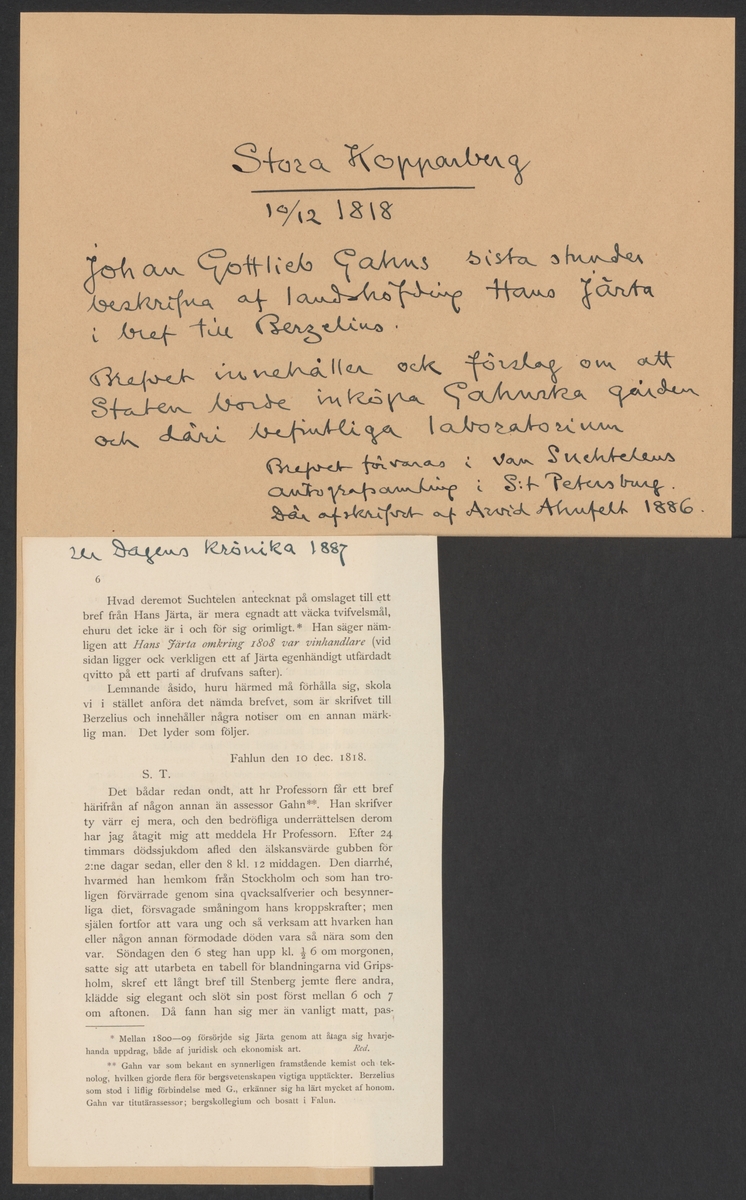 Stora Kopparberg
10/12 1818
Johan Gottlieb Gahns sista stunder
beskrifna af landshöfding Hans Järta
i bref till Berzelius.
Brefvet innehåller ock förslag om att
Staten borde inköpa Gahnska gården
och däri befintliga laboratorium
Brefvet förvaras i van Suchtelens
autografsamling i S:t Petersburg.
Där afskrifvet af Arvid Ahnfelt 1886.
Dagens krönika 1887
6
Hvad deremot Suchtelen antecknat på omslaget till ett
bref från Hans Järta, är mera egnadt att väcka tvifvelsmål,
ehuru det icke är i och för sig orimligt.* Han säger näm-
ligen att Hans Järta omkring 1808 var vinhandlare (vid
sidan ligger ock verkligen ett af Järta egenhändigt utfärdadt
qvitto på ett parti af drufvans safter).
Lemnande åsido, huru härmed må förhålla sig, skola
vi i stället anföra det nämda brefvet, som är skrifvet till
Berzelius och innehåller några notiser om en annan märk-
lig man. Det lyder som följer.
Fahlun den 10 dec. 1818.
S. T.
Det bådar redan ondt, att hr Professorn får ett bref
härifrån af någon annan än assessor Gahn**. Han skrifver
ty värr ej mera, och den bedröfliga underrättelsen derom
har jag åtagit mig att meddela Hr Professorn. Efter 24
timmars dödssjukdom afled den älskansvärde gubben för
2:ne dagar sedan, eller den 8 kl. 12 middagen. Den diarrhé,
hvarmed han hemkom från Stockholm och som han tro-
ligen förvärrade genom sina qvacksalfverier och besynner-
liga diet, försvagade småningom hans kroppskrafter; men
själen fortfor att vara ung och så verksam att hvarken han
eller någon annan förmodade döden vara så nära som den
var. Söndagen den 6 steg han upp kl. ½ 6 om morgonen,
satte sig att utarbeta en tabell för blandningarna vid Grips-
holm, skref ett långt bref till Stenberg jemte flere andra,
klädde sig elegant och slöt sin post först mellan 6 och 7
om aftonen. Då fann han sig mer än vanligt matt, pas-
* Mellan 1800—09 försörjde sig Järta genom att åtaga sig hvarje-
handa uppdrag, både af juridisk och ekonomisk art. Red.
** Gahn var som bekant en synnerligen framstående kemist och tek-
nolog, hvilken gjorde flera för bergsvetenskapen vigtiga upptäckter. Berzelius
som stod i liflig förbindelse med G., erkänner sig ha lärt mycket af honom.
Gahn var titutärassessor; bergskollegium och bosatt i Falun.